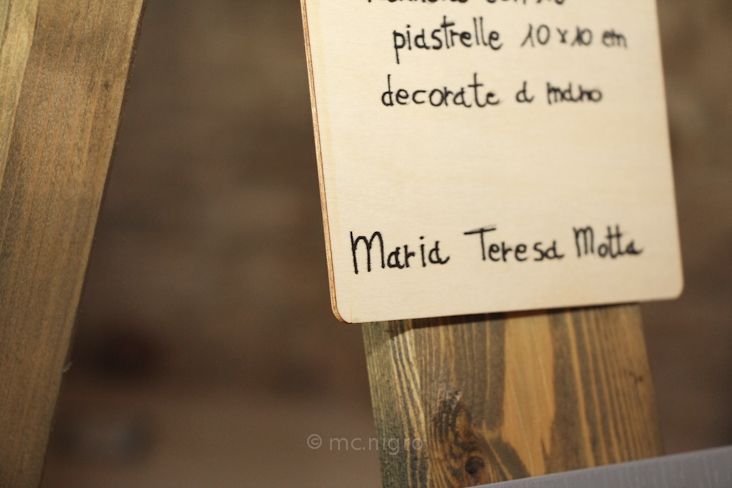 piastrelle 10x10 cm
decorate a mano
Maria Teresa Motta
© mc.nigro